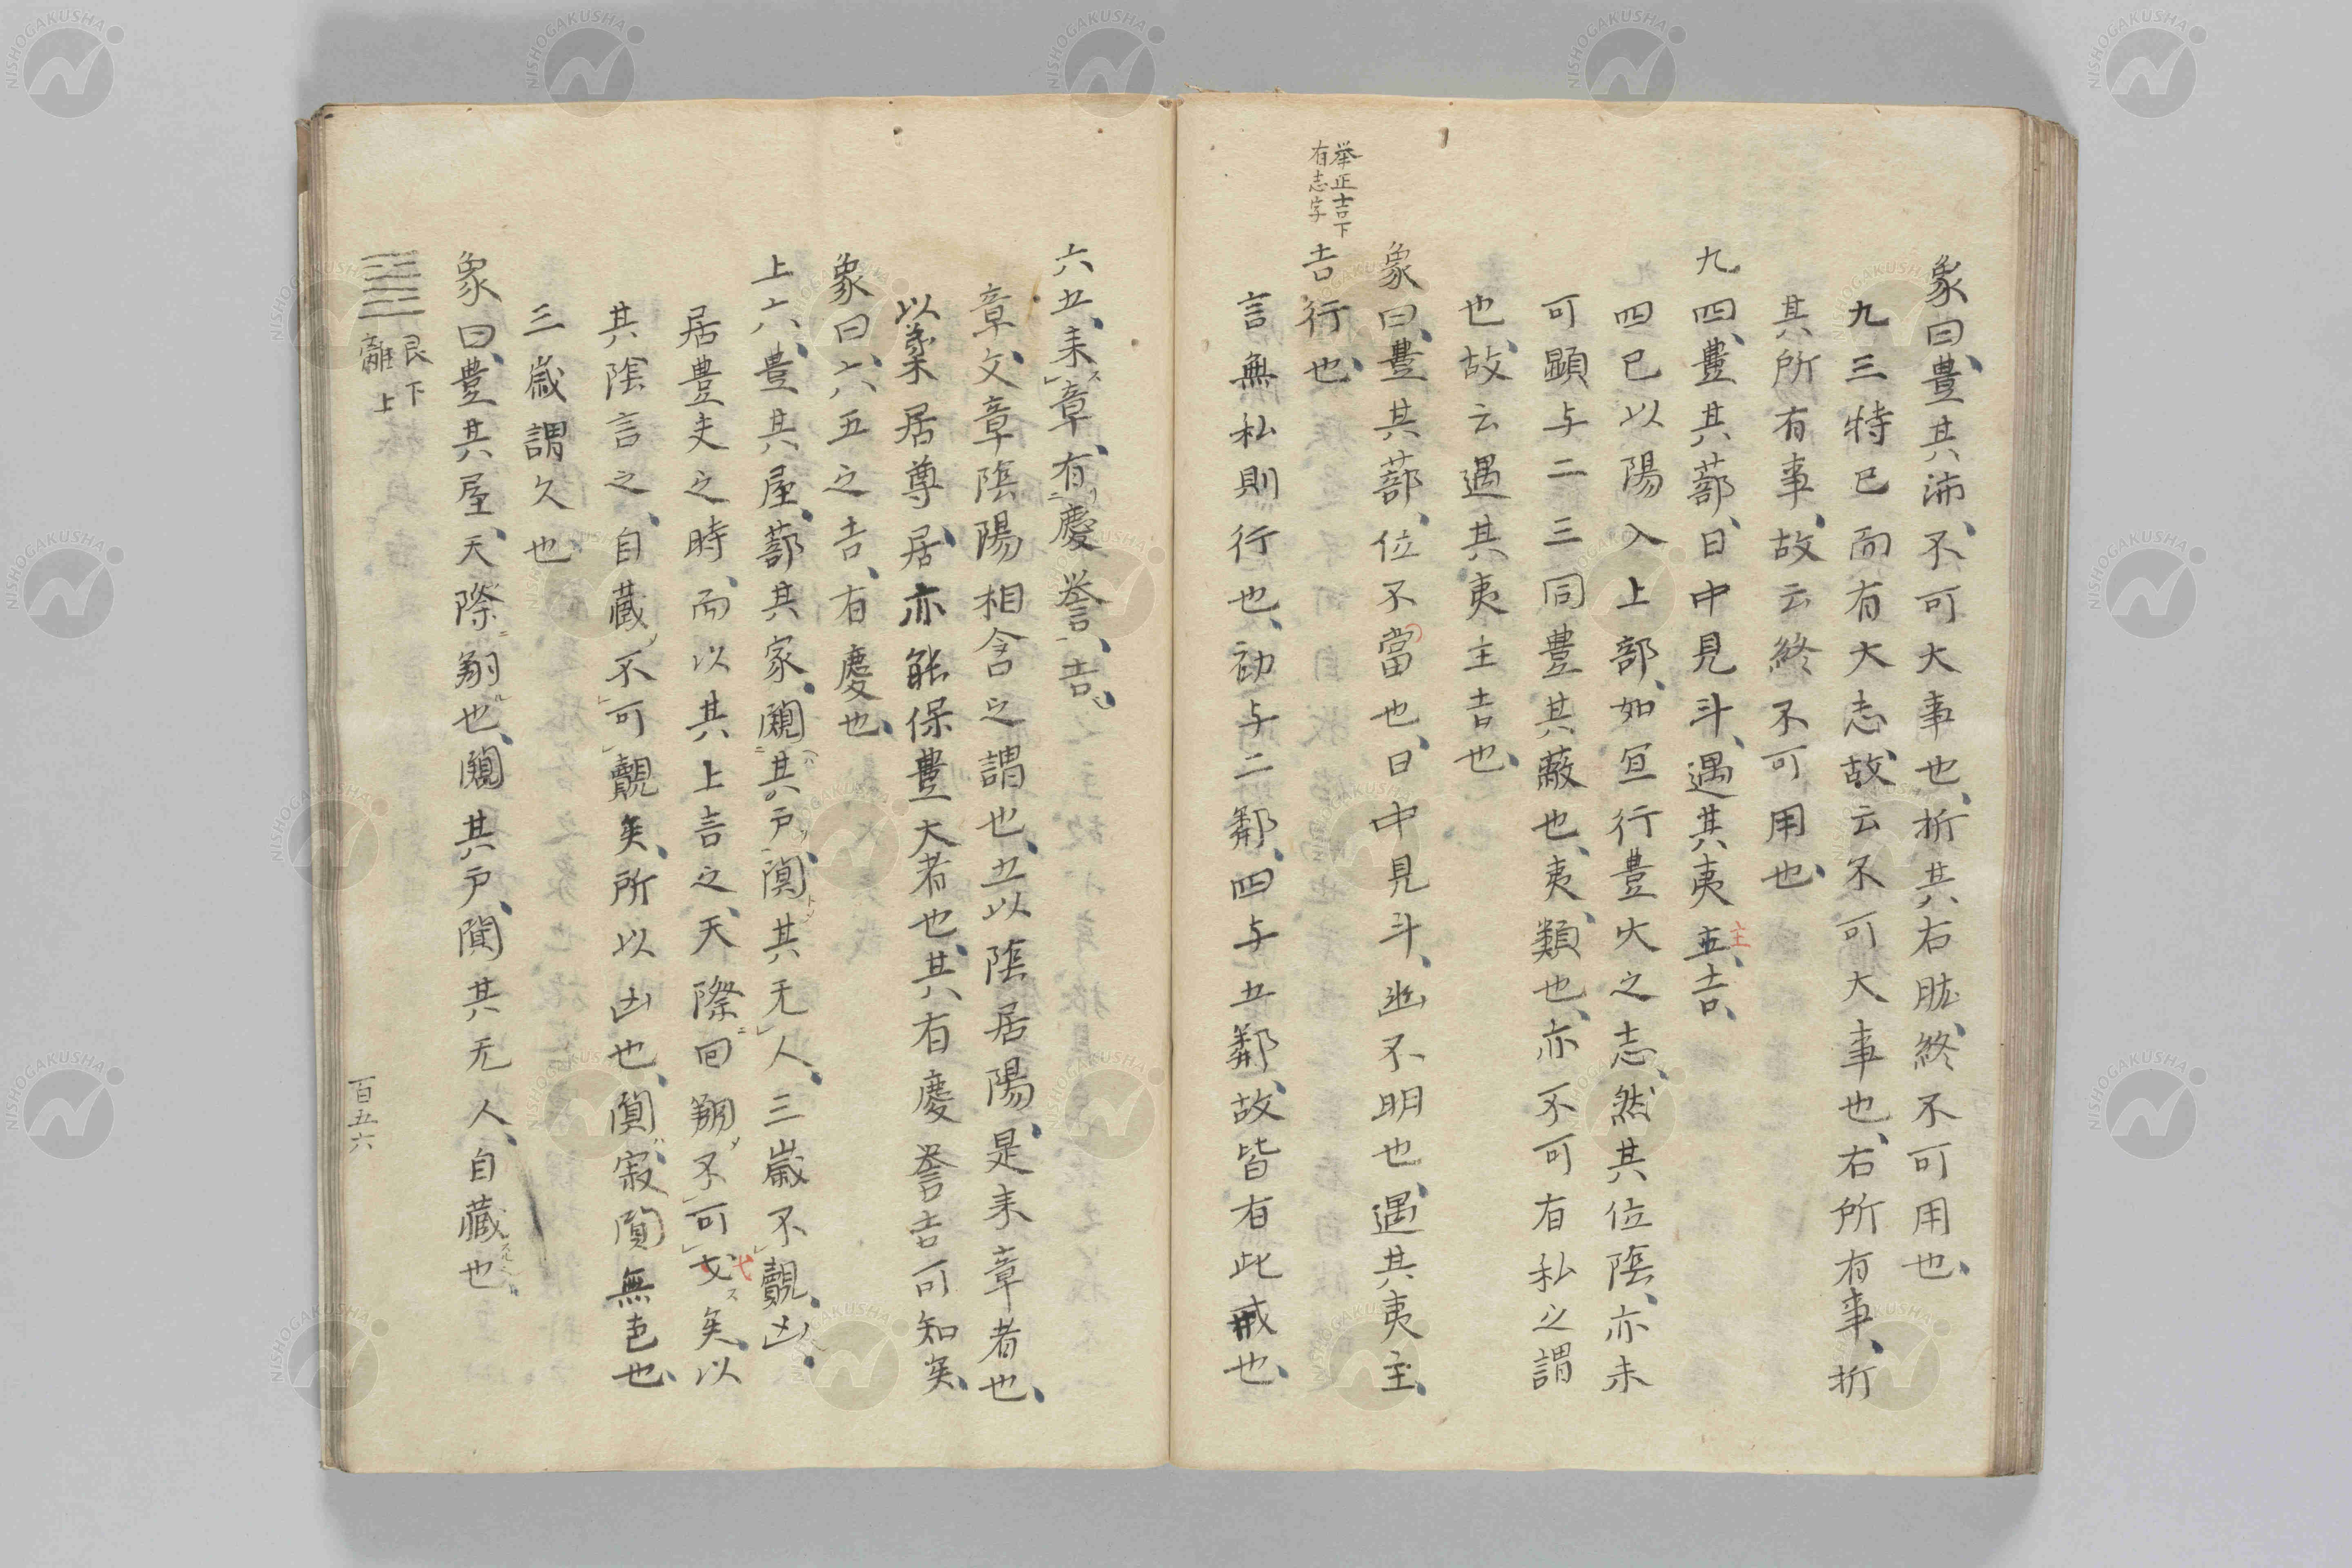 象曰、豊其沛、不可大事也、折其右肱、終不可用也、
九三特已而有大志、故云不可大事也、右所有事、折
其所有事、故云終不可用也、
九四、豊其蔀、日中見斗、遇其夷主五、吉、
四已以陽入上部、如宜行豊大之志、然其位陰、亦未
可顕与二三同豊其蔽也、夷、類也、亦不可有私之謂
也、故云遇其夷主吉也、
象曰、豊其蔀、位不當也、日中見斗、幽不明也、遇其夷主、
挙正吉下
有志字
吉行也、
言無私則行也、初与二鄰、四与五鄰、故皆有此戒也、
六五、来章、有慶誉、吉、
章文章陰陽相含之謂也、五以陰居陽、是来章者也、
以柔居尊居、亦能保豊大者也、其有慶誉吉可知矣、
象曰、六五之吉、有慶也、
上六、豊其屋、蔀其家、闚其戸、闃其无人、三歳不覿、凶、
居豊大之時、而以其上言之、天際回翔不可弋矣、以
其陰言之、自蔵不可覿矣、所以凶也、闃寂闃無色也、
三歳謂久也
象曰、豊其屋、天際翔也、闚其戸、闃其无人、自蔵也
艮下
離上
百五六
NISHOGAKUSHA